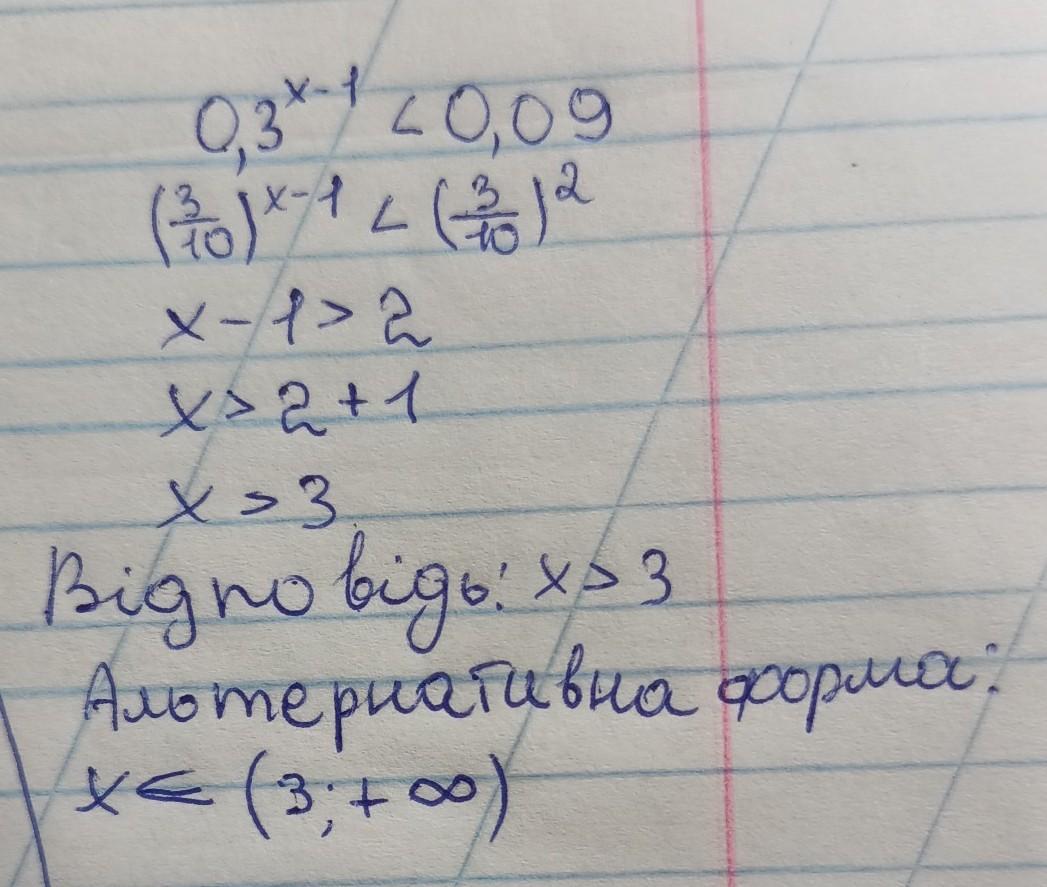 0,3^{x-1} < 0,09
(3/10)^{x-1} < (3/10)^2
x-1 > 2
x > 2 + 1
x > 3
Відповідь: x > 3
Альтернативна форма:
x ∈ (3; + ∞)